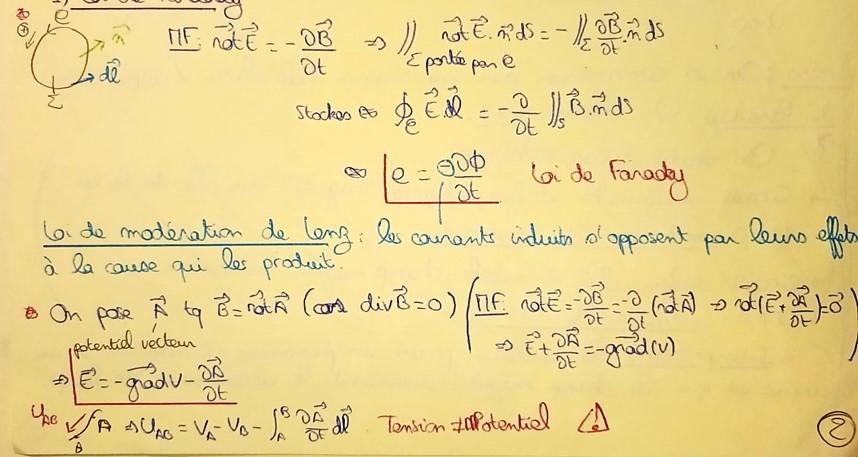 e
n⃗
dl⃗
Σ
MF: rot⃗ E⃗ = -∂B⃗/∂t ⇒ ∬_Σ portée par e rot⃗ E⃗.n⃗ dS = -∬_Σ ∂B⃗/∂t.n⃗ dS
Stockes ⇔ ∮_e E⃗.dl⃗ = -∂/∂t ∬_S B⃗.n⃗ dS
⇔ e = ⊖∂Φ/∂t Loi de Faraday
Loi de modération de Lenz: les courants induits s'opposent par leurs effets
à la cause qui les produit.
On pose A⃗ tq B⃗=rot⃗A⃗ (car divB⃗=0) (MF: rot⃗E⃗=-∂B⃗/∂t=-∂/∂t(rot⃗A⃗) ⇒ rot⃗(E⃗+∂A⃗/∂t)=0⃗
potentiel vecteur
⇒ E⃗+∂A⃗/∂t=-grad⃗(V))
⇒ E⃗=-grad⃗V-∂A⃗/∂t
U_AB A B ⇒ U_AB = V_A - V_B - ∫_A^B ∂A⃗/∂t dl⃗ Tension ≠ Potentiel ⚠
2